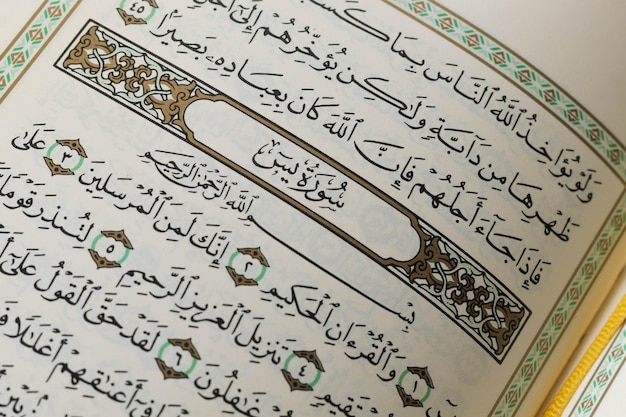 وَلَوْ يُؤَاخِذُ ٱللَّهُ ٱلنَّاسَ بِمَا كَسَبُ
ظَهْرِهَا مِن دَآبَّةٍ وَلَٰكِن يُؤَخِّرُهُمْ إِلَىٰٓ أَجَلٍ
فَإِذَا جَآءَ أَجَلُهُمْ فَإِنَّ ٱللَّهَ كَانَ بِعِبَادِهِۦ بَصِيرًۢا ٤٥
سُورَةُ يسٓ
بِسْمِ ٱللَّهِ ٱلرَّحْمَٰنِ ٱلرَّحِيمِ
١ وَٱلْقُرْءَانِ ٱلْحَكِيمِ ٢ إِنَّكَ لَمِنَ ٱلْمُرْسَلِينَ ٣ عَلَىٰ
سْتَقِيمٍ ٤ تَنزِيلَ ٱلْعَزِيزِ ٱلرَّحِيمِ ٥ لِتُنذِرَ قَوْمًا
غَٰفِلُونَ ٦ لَقَدْ حَقَّ ٱلْقَوْلُ عَلَىٰٓ أَ
فِىٓ أَعْنَٰقِهِمْ أَغْلَٰلًا فَ